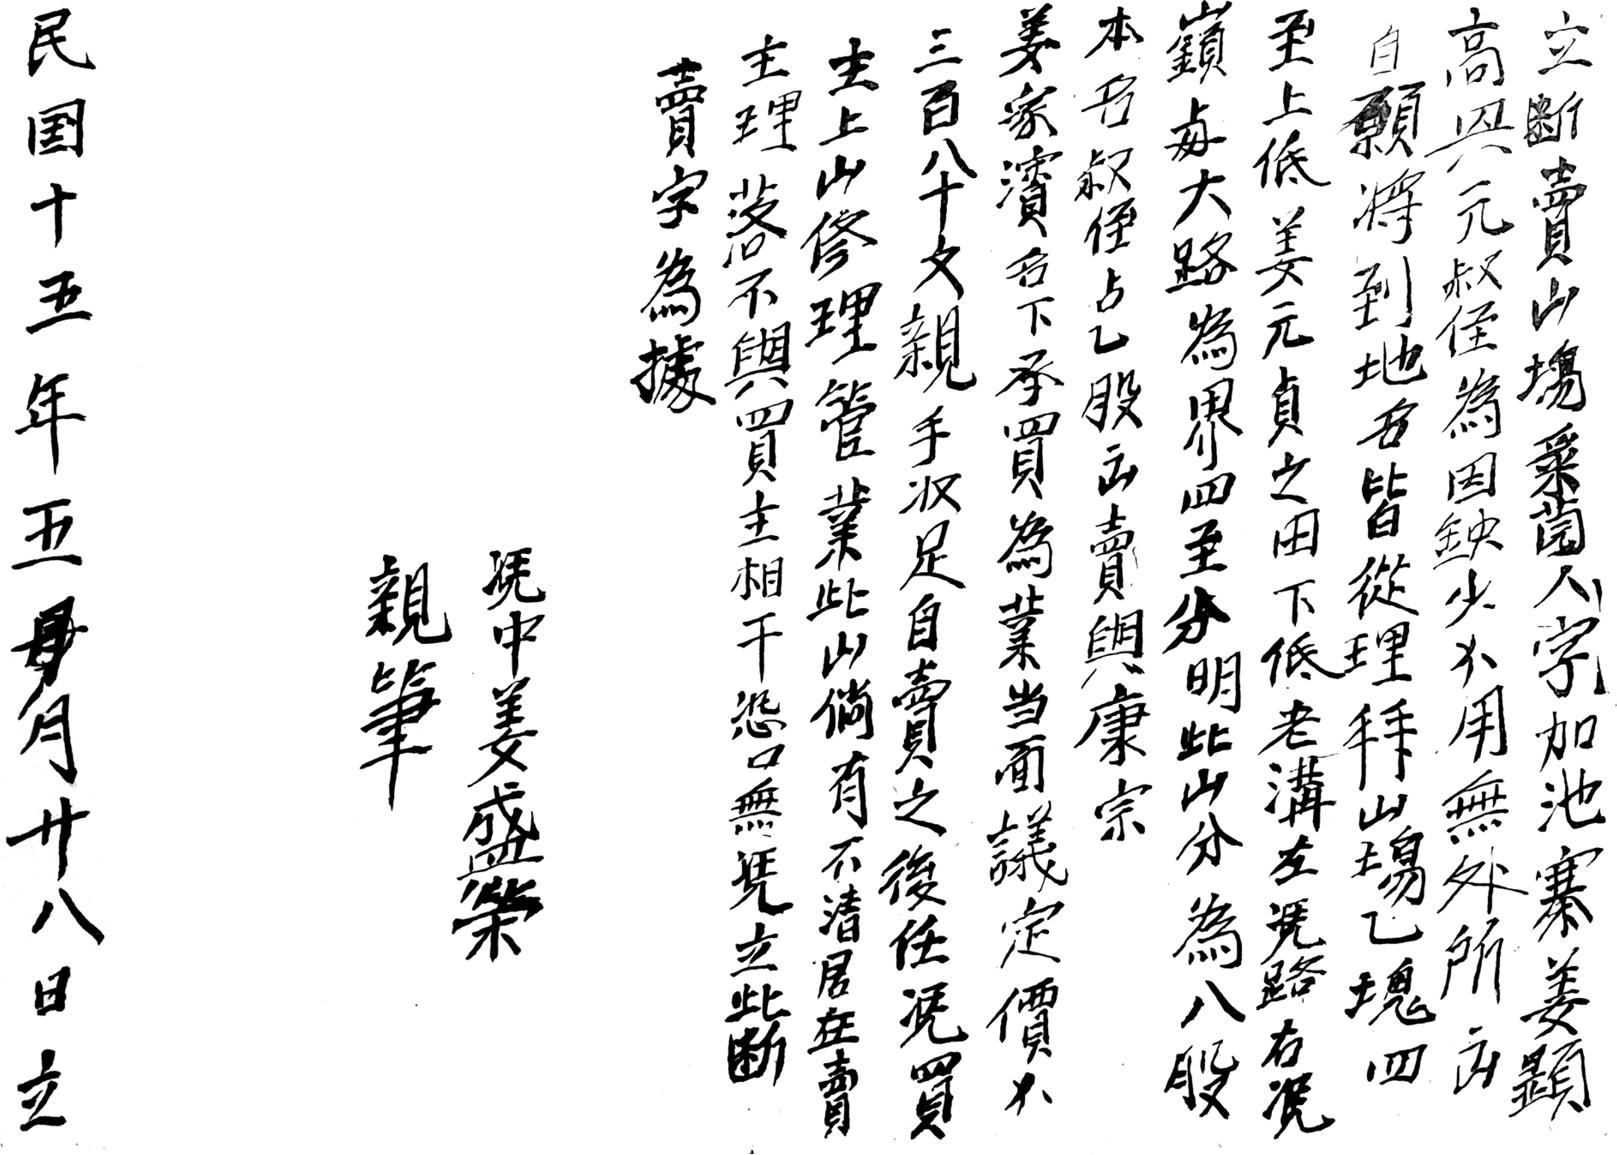 立断賣山塲菜園人字加池寨姜顕
高與元叔侄為因缺少ホ用無外所出
自願將到地名皆從理拜山塲乙塊四
至上低姜元貞之田下低老溝左凴路右凴
嶺毎大路為界四至分明此山分為八股
本名叔侄占乙股出賣與康宗
姜家濱名下承買為業当面議定價ホ
三百八十文親手収足自賣之後任凴買
主上山修理管業此山倘有不清居在賣
主理落不與買主相干恐口無凴立此断
賣字為據
凴中姜盛榮
親筆
民国十五年五月廿八日立